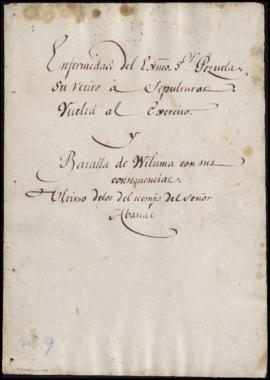 Enfermedad del Exmo. Sr. Pezuela.
Su retiro á Sepulturas
Vuelta al Exercito.
y
Batalla de Wiluma con sus
consequencias.
Ultimo de los del tiempo del Señor
Abascal
nº 9